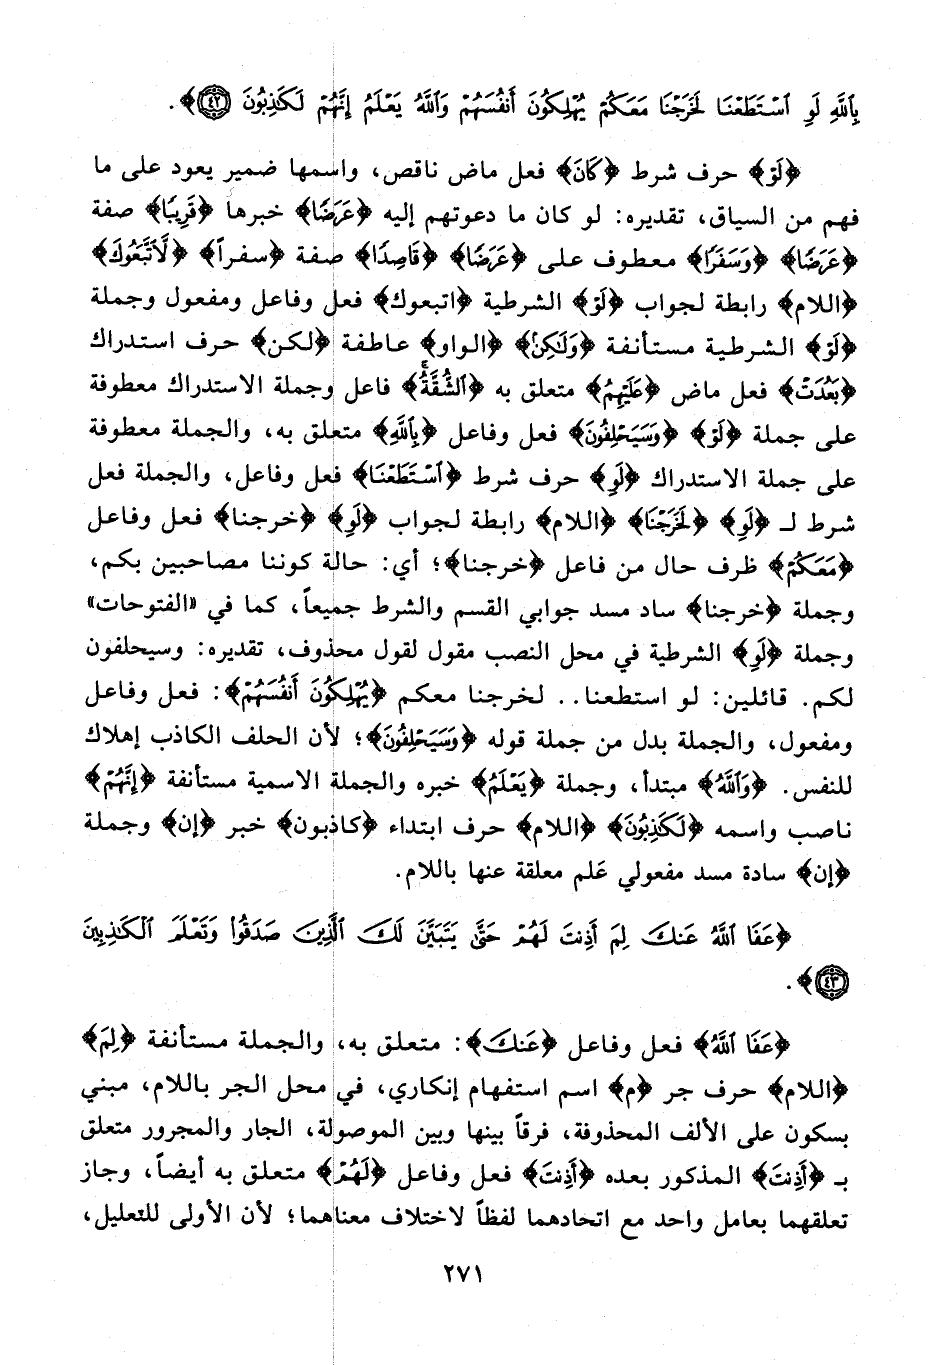 بِٱللَّهِ لَوِ ٱسْتَطَعْنَا لَخَرَجْنَا مَعَكُمْ يُهْلِكُونَ أَنفُسَهُمْ وَٱللَّهُ يَعْلَمُ إِنَّهُمْ لَكَٰذِبُونَ ٤٢﴾.
﴿لَوْ﴾ حرف شرط ﴿كَانَ﴾ فعل ماض ناقص، واسمها ضمير يعود على ما
فهم من السياق، تقديره: لو كان ما دعوتهم إليه ﴿عَرَضًا﴾ خبرها ﴿قَرِيبًا﴾ صفة
﴿عَرَضًا﴾ ﴿وَسَفَرًا﴾ معطوف على ﴿عَرَضًا﴾ ﴿قَاصِدًا﴾ صفة ﴿سفراً﴾ ﴿لَّٱتَّبَعُوكَ﴾
﴿اللام﴾ رابطة لجواب ﴿لَوْ﴾ الشرطية ﴿اتبعوك﴾ فعل وفاعل ومفعول وجملة
﴿لَوْ﴾ الشرطية مستأنفة ﴿وَلَٰكِنۢ﴾ ﴿الواو﴾ عاطفة ﴿لكن﴾ حرف استدراك
﴿بَعُدَتْ﴾ فعل ماض ﴿عَلَيْهِمُ﴾ متعلق به ﴿ٱلشُّقَّةُ﴾ فاعل وجملة الاستدراك معطوفة
على جملة ﴿لَوْ﴾ ﴿وَسَيَحْلِفُونَ﴾ فعل وفاعل ﴿بِٱللَّهِ﴾ متعلق به، والجملة معطوفة
على جملة الاستدراك ﴿لَوِ﴾ حرف شرط ﴿ٱسْتَطَعْنَا﴾ فعل وفاعل، والجملة فعل
شرط لـ ﴿لَوِ﴾ ﴿لَخَرَجْنَا﴾ ﴿اللام﴾ رابطة لجواب ﴿لَوِ﴾ ﴿خرجنا﴾ فعل وفاعل
﴿مَعَكُمْ﴾ ظرف حال من فاعل ﴿خرجنا﴾؛ أي: حالة كوننا مصاحبين بكم،
وجملة ﴿خرجنا﴾ ساد مسد جوابي القسم والشرط جميعاً، كما في «الفتوحات»
وجملة ﴿لَوِ﴾ الشرطية في محل النصب مقول لقول محذوف، تقديره: وسيحلفون
لكم. قائلين: لو استطعنا.. لخرجنا معكم ﴿يُهْلِكُونَ أَنفُسَهُمْ﴾: فعل وفاعل
ومفعول، والجملة بدل من جملة قوله ﴿وَسَيَحْلِفُونَ﴾؛ لأن الحلف الكاذب إهلاك
للنفس. ﴿وَٱللَّهُ﴾ مبتدأ، وجملة ﴿يَعْلَمُ﴾ خبره والجملة الاسمية مستأنفة ﴿إِنَّهُمْ﴾
ناصب واسمه ﴿لَكَٰذِبُونَ﴾ ﴿اللام﴾ حرف ابتداء ﴿كاذبون﴾ خبر ﴿إن﴾ وجملة
﴿إن﴾ سادة مسد مفعولي عَلم معلقة عنها باللام.
﴿عَفَا ٱللَّهُ عَنكَ لِمَ أَذِنتَ لَهُمْ حَتَّىٰ يَتَبَيَّنَ لَكَ ٱلَّذِينَ صَدَقُوا۟ وَتَعْلَمَ ٱلْكَٰذِبِينَ
٤٣﴾.
﴿عَفَا ٱللَّهُ﴾ فعل وفاعل ﴿عَنكَ﴾: متعلق به، والجملة مستأنفة ﴿لِمَ﴾
﴿اللام﴾ حرف جر ﴿م﴾ اسم استفهام إنكاري، في محل الجر باللام، مبني
بسكون على الألف المحذوفة، فرقاً بينها وبين الموصولة، الجار والمجرور متعلق
بـ ﴿أَذِنتَ﴾ المذكور بعده ﴿أَذِنتَ﴾ فعل وفاعل ﴿لَهُمْ﴾ متعلق به أيضاً، وجاز
تعلقهما بعامل واحد مع اتحادهما لفظاً لاختلاف معناهما؛ لأن الأولى للتعليل،
٢٧١